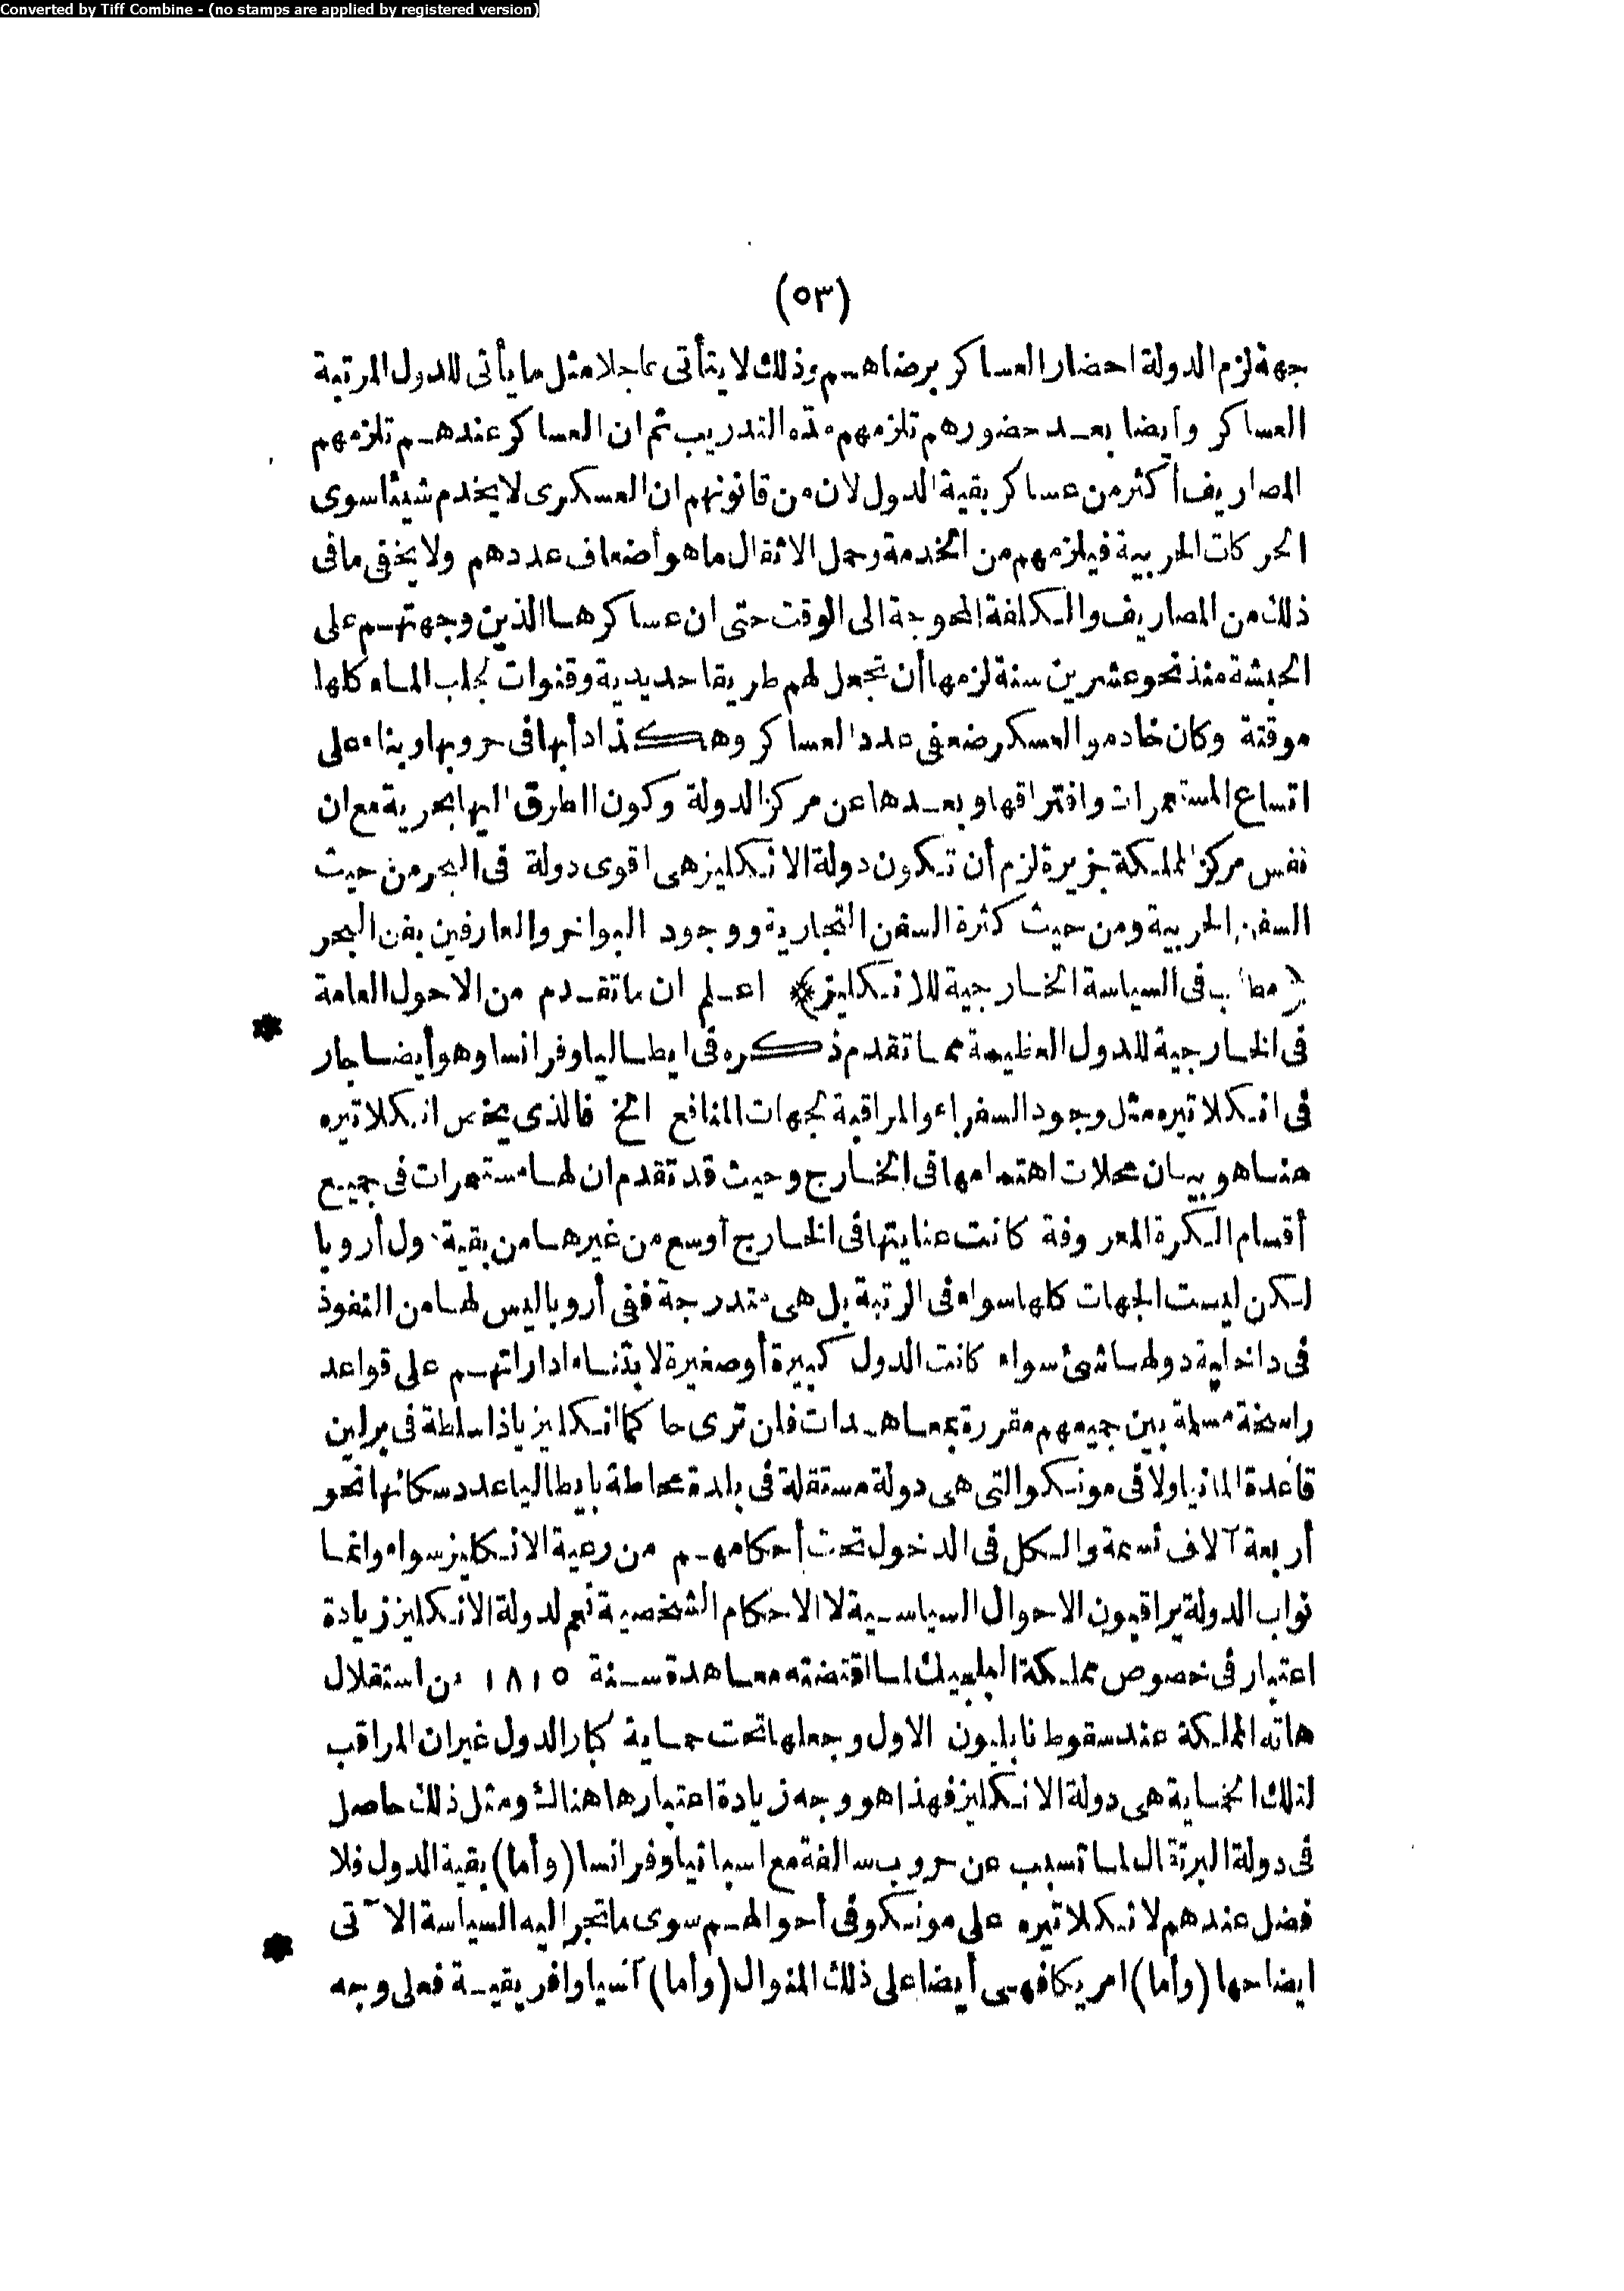 Converted by Tiff Combine - (no stamps are applied by registered version)
(٥٣)
جهة لزم الدولة احضار العساكر برضاهم وذلك لا يتأتى عاجلا مثل ما يأتى للدول المرتبة
العساكر وأيضا بعد حضورهم تلزمهم مدة التدريب ثم ان العساكر عندهم تلزمهم
المصاريف أكثر من عساكر بقية الدول لان من قانونهم ان العسكرى لا يخدم شيئا سوى
الحركات الحربية فيلزمهم من الخدمة وحمل الاثقال ما هو أضعاف عددهم ولا يخفى ما فى
ذلك من المصاريف والكلفة المحوجة الى الوقت حتى ان عساكرها الذين وجهتهم على
الحبشة منذ نحو عشرين سنة لزمها أن تجعل لهم طريقا حديدية وقنوات لجلب الماء كلها
موقتة وكان خادمو العسكر ضعفى عدد العساكر وهكذا دأبها فى حروبها وبناء على
اتساع المستعمرات وافتراقها وبعدها عن مركز الدولة وكون الطرق اليها بحرية مع ان
نفس مركز المملكة جزيرة لزم أن تكون دولة الانكليز هى اقوى دولة فى البحر من حيث
السفن الحربية ومن حيث كثرة السفن التجارية ووجود البواخر والعارفين بفن البحر
﴿مطلب فى السياسة الخارجية للانكليز﴾ اعلم ان ما تقدم من الاحول العامة
فى الخارجية للدول العظيمة مما تقدم ذكره فى ايطاليا وفرانسا وهو أيضا جار
فى انكلاتيره مثل وجود السفراء والمراقبة لجهات المنافع الخ فالذى يخص انكلاتيره
هنا هو بيان محلات اهتمامها فى الخارج وحيث قد تقدم ان لها مستعمرات فى جميع
أقسام الكرة المعروفة كانت عنايتها فى الخارج أوسع من غيرها من بقية دول أروبا
لكن ليست الجهات كلها سواء فى الرتبة بل هى متدرجة ففى أروبا ليس لها من النفوذ
فى داخلية دولها شئ سواء كانت الدول كبيرة أو صغيرة لابتناء اداراتهم على قواعد
راسخة مسلمة بين جميعهم مقررة بمعاهدات فلن ترى حاكما انكليزيا ذا سلطة فى برلين
قاعدة المانيا ولا فى مونكو التى هى دولة مستقلة فى بلدة محاطة بايطاليا عدد سكانها نحو
أربعة آلاف نسمة والكل فى الدخول تحت أحكامهم من رعية الانكليز سواء وانما
نواب الدولة يراقبون الاحوال السياسية لا الاحكام الشخصية نعم لدولة الانكليز زيادة
اعتبار فى خصوص مملكة البلجيك لما اقتضته معاهدة سنة ١٨١٥ من استقلال
هاته المملكة عند سقوط نابليون الاول وجعلها تحت حماية كبار الدول غير ان المراقب
لتلك الحماية هى دولة الانكليز فهذا هو وجه زيادة اعتبارها هنالك ومثل ذلك حاصل
فى دولة البرتقال لما تسبب عن حروب سالفة مع اسبانيا وفرانسا (وأما) بقية الدول فلا
فضل عندهم لانكلاتيره على مونكو فى أحوالهم سوى ما تجر اليه السياسة الآتى
ايضاحها (وأما) امريكا فهى أيضا على ذلك المنوال (وأما) آسيا وافريقية فعلى وجه